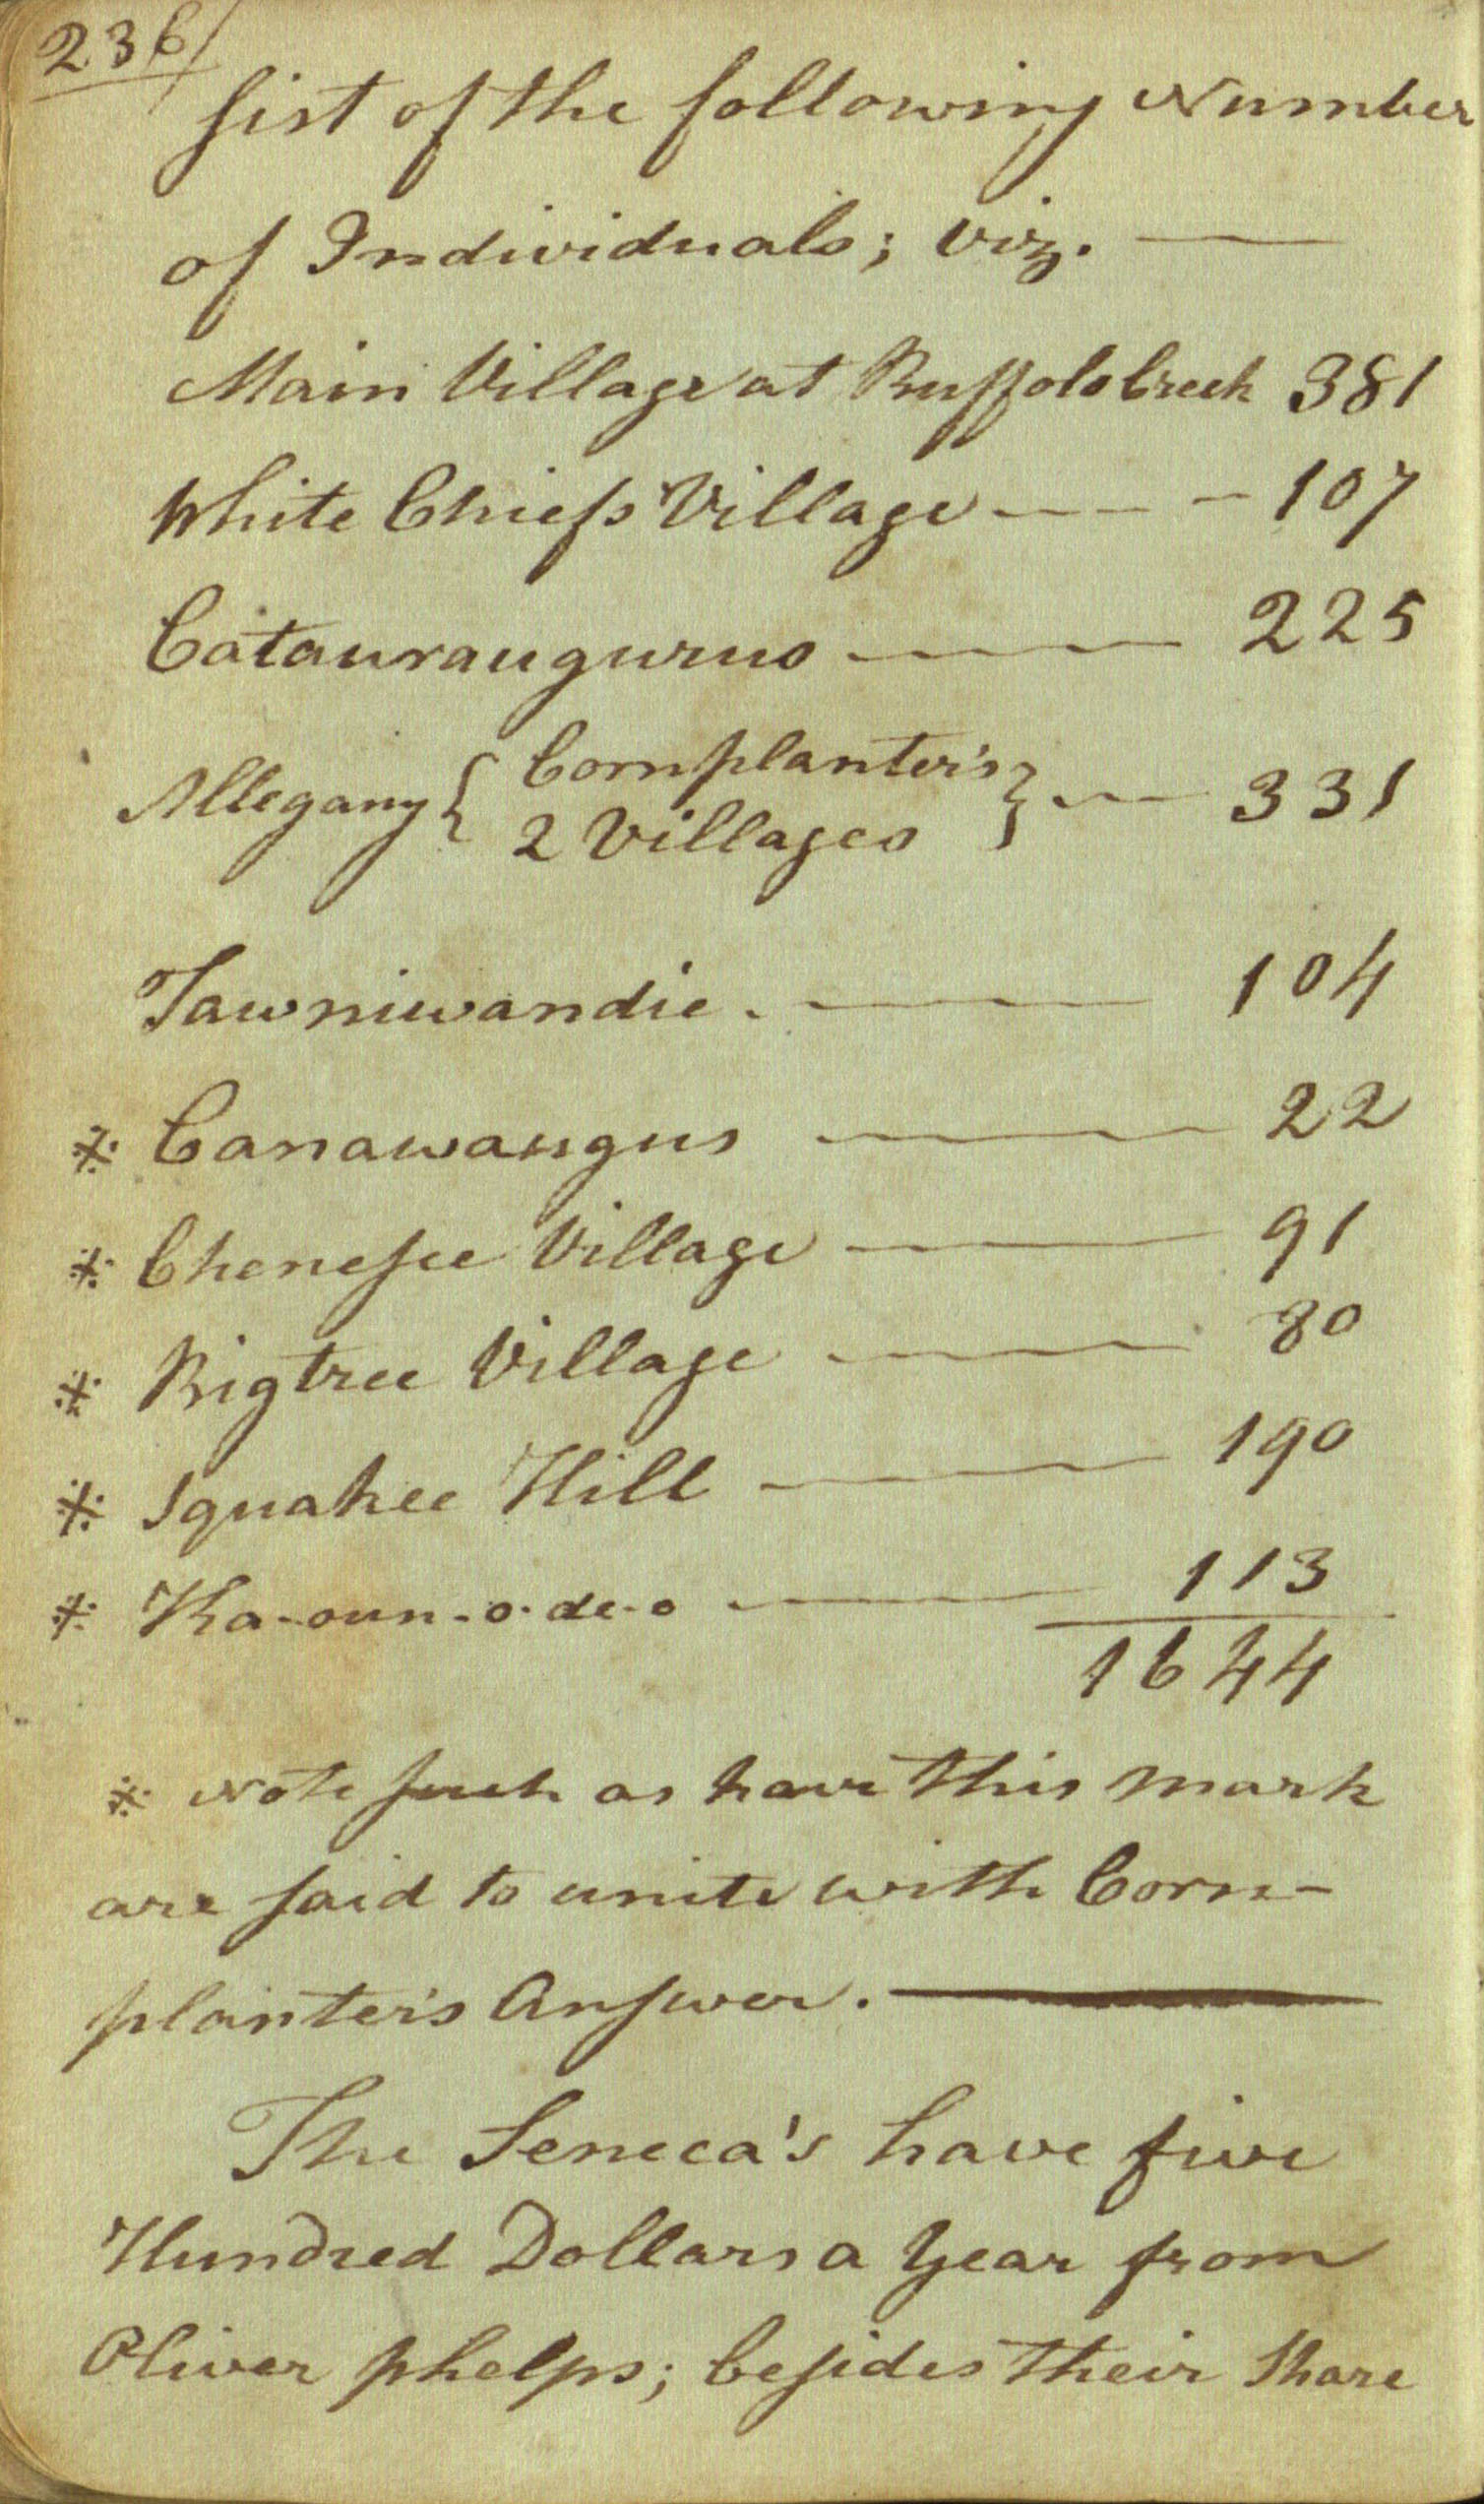 236/
sist of the following Number
of Individuals; viz. —
Main Village at Buffolo Creek 381
White Chiefs Village — — — 107
Catauraugurus — 225
Allegany { Cornplanter's } — 331
2 Villages
Tawniwandie. — 104
※ Canawaugus — 22
※ Chenessee Village — 91
※ Bigtree Village — 80
※ Squakee Hill — 190
※ Ka-oun-o-de-o — 113
1644
※ Note such as have this mark
are said to unite with Corn-
planter's Answer. —
The Seneca's have five
Hundred Dollars a Year from
Oliver phelps; besides their Share